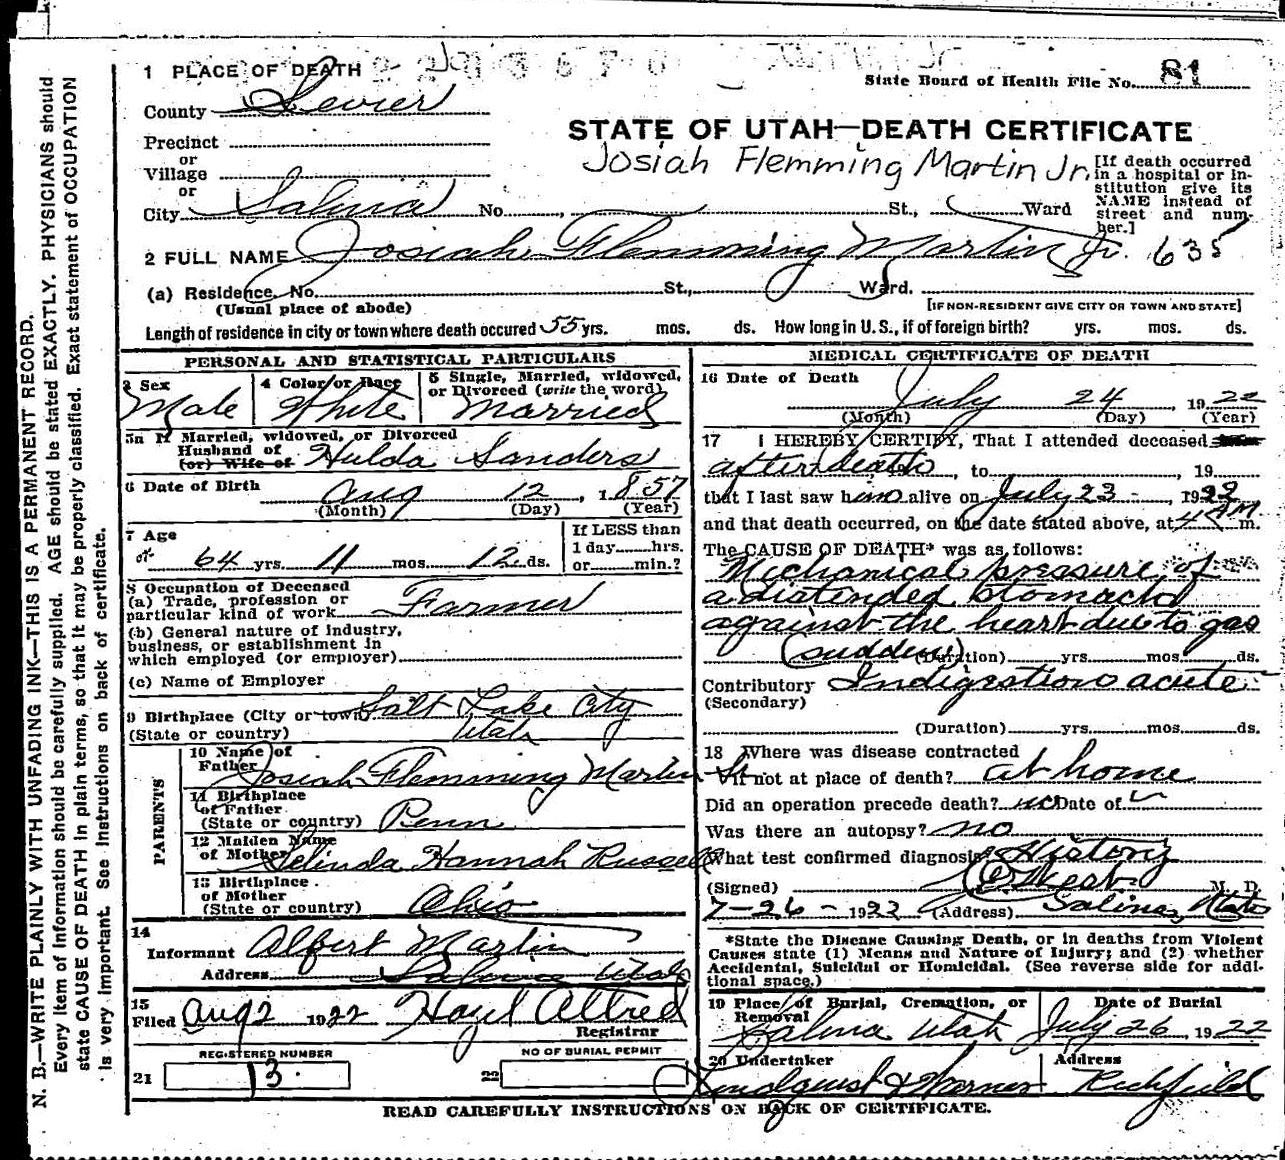 1 PLACE OF DEATH
State Board of Health File No. 81
County Sevier
STATE OF UTAH—DEATH CERTIFICATE
Precinct
or
Village
or
Josiah Flemming Martin Jr.
[If death occurred
in a hospital or in-
stitution give its
NAME instead of
street and num-
ber.]
City Salina No. , St., Ward
2 FULL NAME Josiah Flemming Martin Jr. 635
(a) Residence. No. St., Ward.
(Usual place of abode)
[IF NON-RESIDENT GIVE CITY OR TOWN AND STATE]
Length of residence in city or town where death occured 55 yrs. mos. ds. How long in U.S., if of foreign birth? yrs. mos. ds.
PERSONAL AND STATISTICAL PARTICULARS
3 Sex
Male
4 Color or Race
White
5 Single, Married, widowed,
or Divorced (write the word)
Married
5a If Married, widowed, or Divorced
Husband of
(or) Wife of Hulda Sanders
6 Date of Birth
Aug 12, 1857
(Month) (Day) (Year)
7 Age
64 yrs. 11 mos. 12 ds.
If LESS than
1 day hrs.
or min.?
8 Occupation of Deceased
(a) Trade, profession or
particular kind of work Farmer
(b) General nature of industry,
business, or establishment in
which employed (or employer)
(c) Name of Employer
9 Birthplace (City or town) Salt Lake City
(State or country) Utah
PARENTS
10 Name of
Father Josiah Flemming Martin Sr
11 Birthplace
of Father
(State or country) Penn
12 Maiden Name
of Mother Selinda Hannah Russell
13 Birthplace
of Mother
(State or country) Ohio
14
Informant Albert Martin
Address Salina Utah
15
Filed Aug 2 1922 Hazel Allred
Registrar
REGISTERED NUMBER
21 13.
NO OF BURIAL PERMIT
22
MEDICAL CERTIFICATE OF DEATH
16 Date of Death
July 24, 1922
(Month) (Day) (Year)
17 I HEREBY CERTIFY, That I attended deceased
after death, to , 19
that I last saw him alive on July 23 - , 1922
and that death occurred, on the date stated above, at 4 AM m.
The CAUSE OF DEATH* was as follows:
Mechanical pressure of
a distended stomach
against the heart due to gas
(sudden) (Duration) yrs. mos. ds.
Contributory Indigestion acute
(Secondary)
(Duration) yrs. mos. ds.
18 Where was disease contracted
if not at place of death? at home
Did an operation precede death? no Date of
Was there an autopsy? no
What test confirmed diagnosis? History
(Signed) West M. D.
7-26-1922 (Address) Salina, Utah
*State the Disease Causing Death, or in deaths from Violent
Causes state (1) Means and Nature of Injury; and (2) whether
Accidental, Suicidal or Homicidal. (See reverse side for addi-
tional space.)
19 Place of Burial, Cremation, or
Removal
Salina Utah
Date of Burial
July 26, 1922
20 Undertaker
Lindquist & Warner
Address
Richfield
READ CAREFULLY INSTRUCTIONS ON BACK OF CERTIFICATE.
N. B.—WRITE PLAINLY WITH UNFADING INK—THIS IS A PERMANENT RECORD.
Every item of information should be carefully supplied. AGE should be stated EXACTLY. PHYSICIANS should
state CAUSE OF DEATH in plain terms, so that it may be properly classified. Exact statement of OCCUPATION
is very important. See instructions on back of certificate.